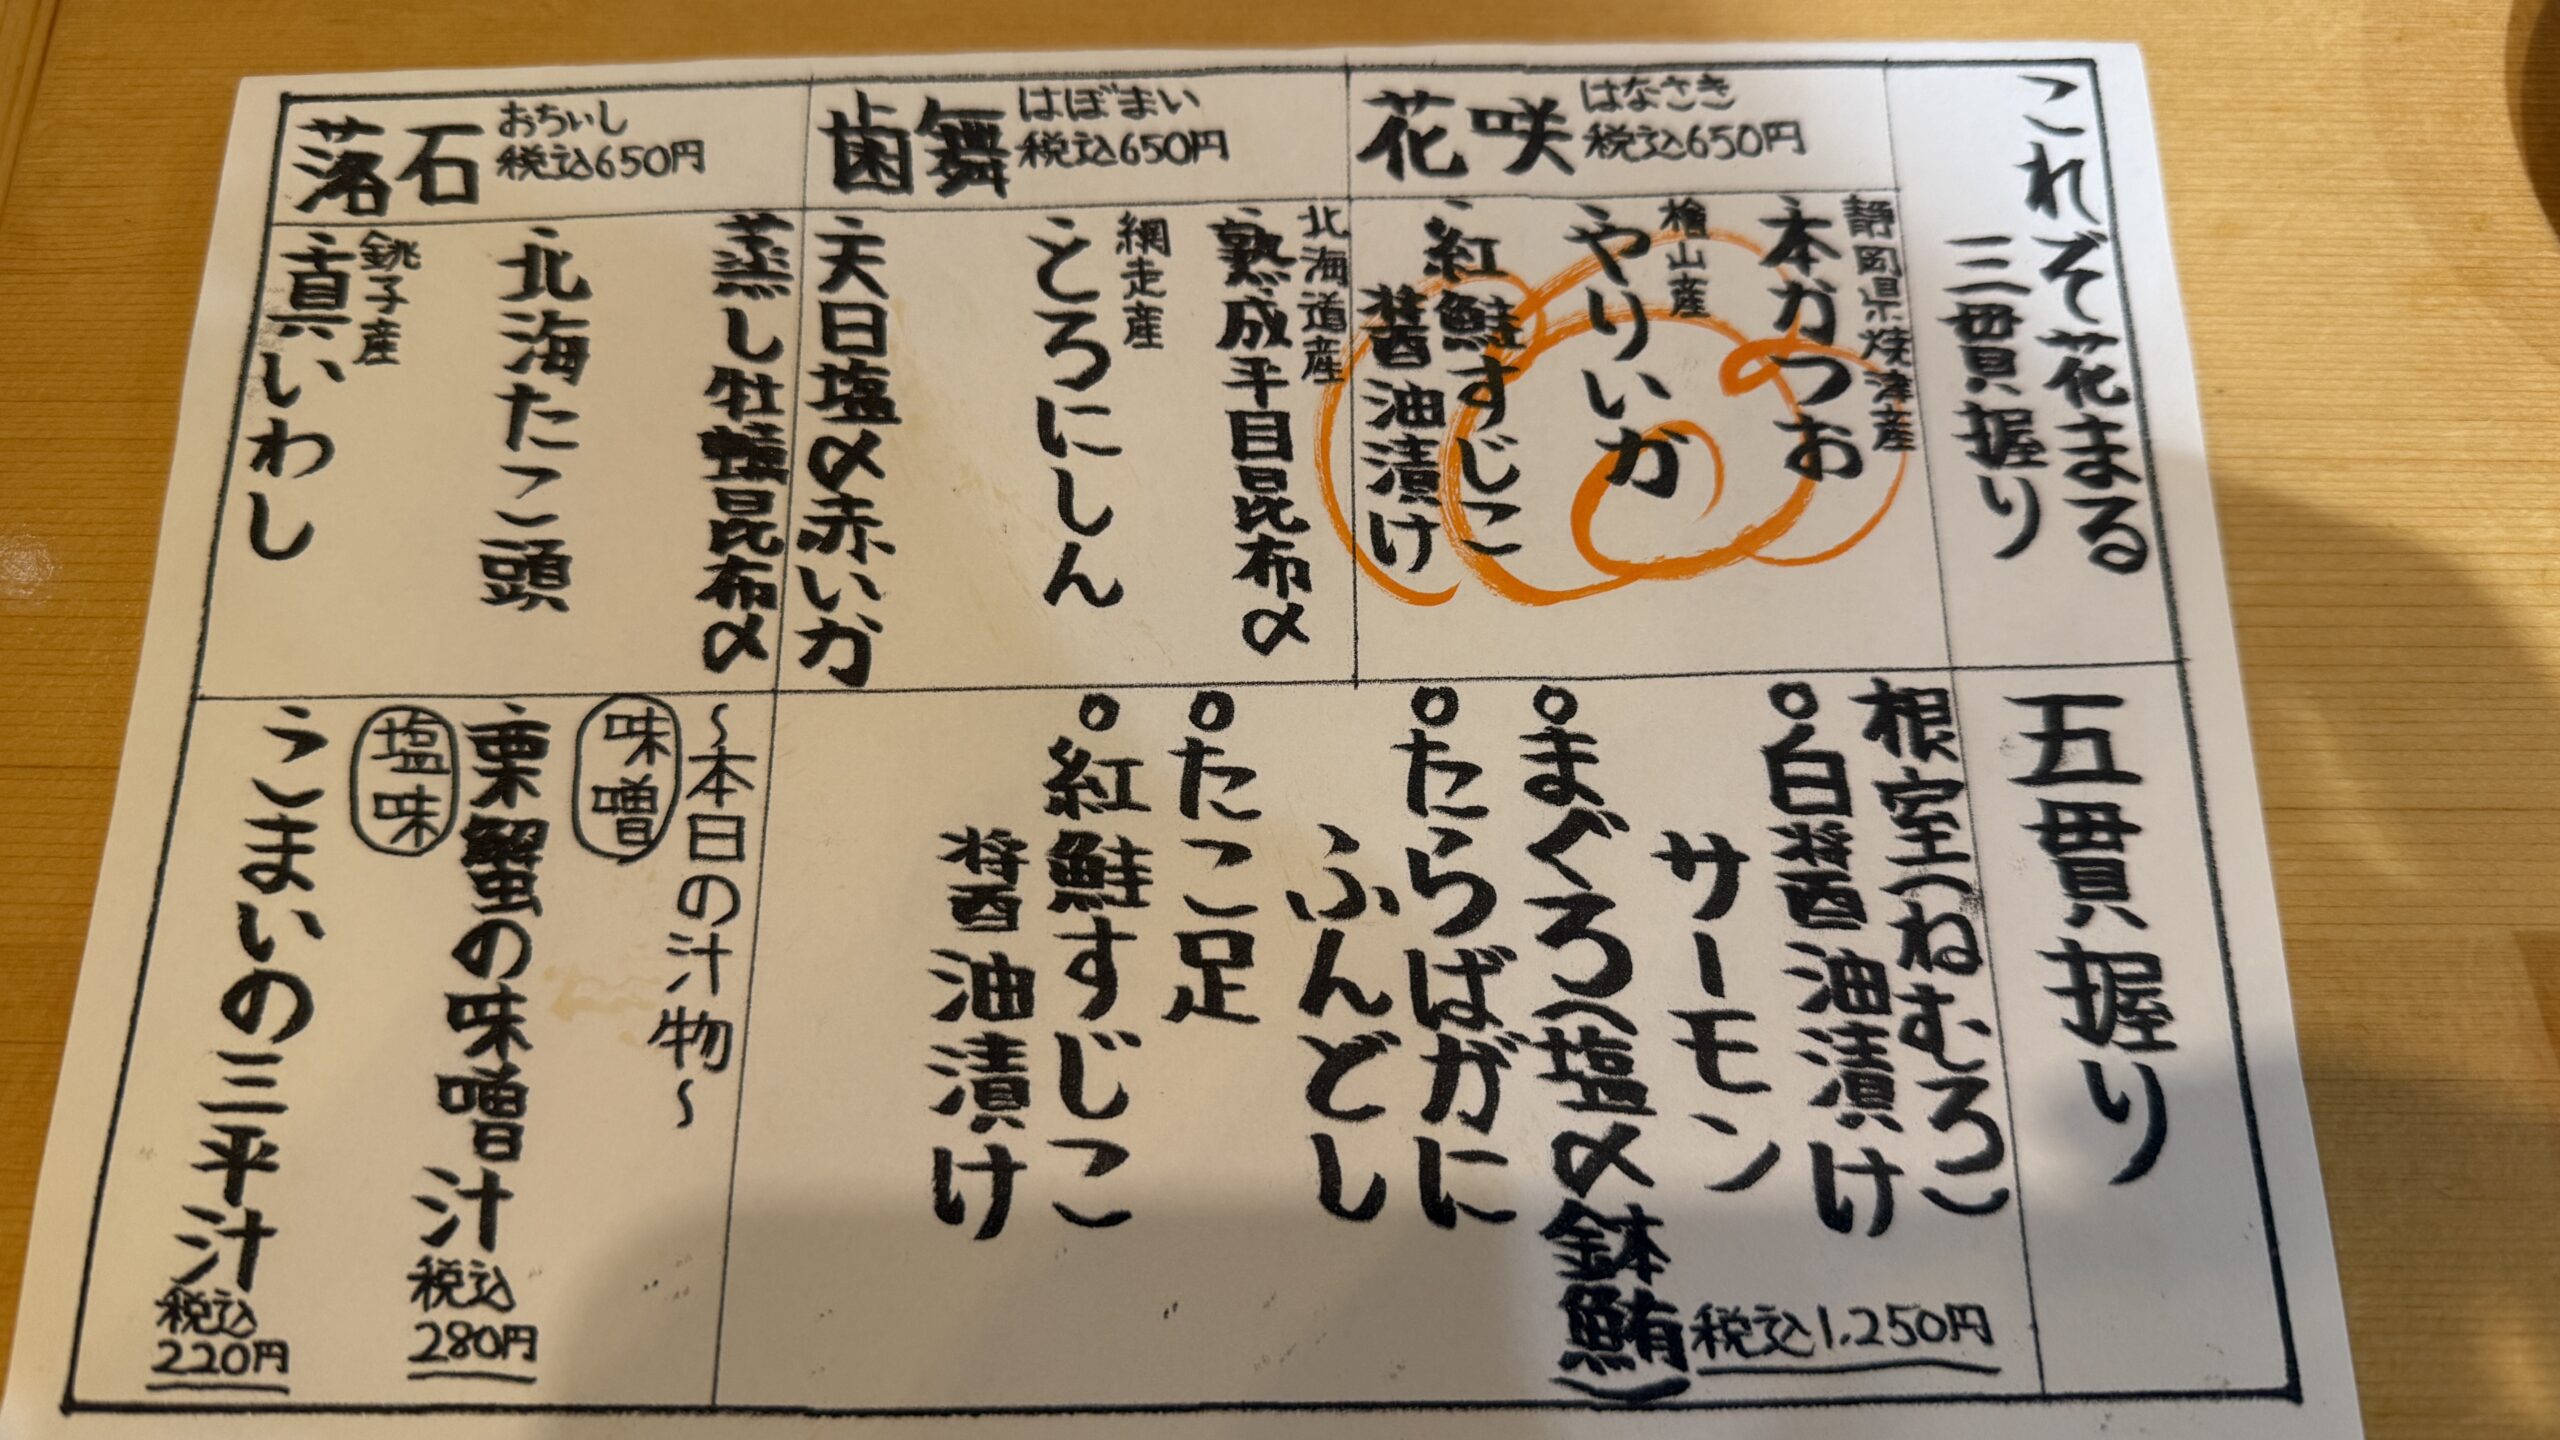 これぞ花まる
三貫握り
花咲
はなさき
税込650円
静岡県焼津産
本かつお
檜山産
やりいか
紅鮭すじこ
醤油漬け
歯舞
はぼまい
税込650円
北海道産
熟成平目昆布〆
網走産
とろにしん
天日塩〆赤いか
落石
おちいし
税込650円
蒸し牡蠣昆布〆
北海たこ頭
銚子産
真いわし
五貫握り
根室(ねむろ)
○白醤油漬け
サーモン
○まぐろ(塩〆鉢鮪)
○たらばがに
ふんどし
○たこ足
○紅鮭すじこ
醤油漬け
税込1,250円
〜本日の汁物〜
味噌
栗蟹の味噌汁
税込
280円
塩味
こまいの三平汁
税込
220円